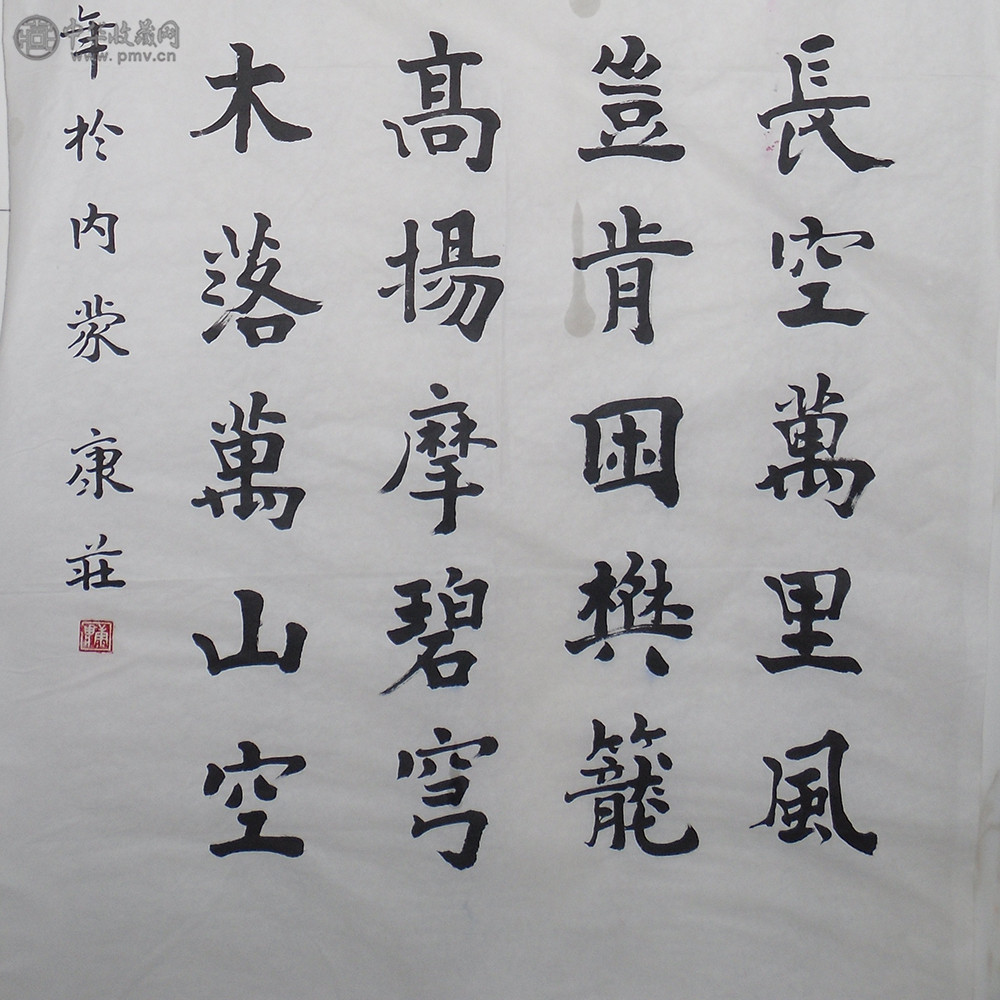 長空萬里風
豈肯困樊籠
高揚摩碧穹
木落萬山空
年於内蒙康莊
中华收藏网
www.pmv.cn